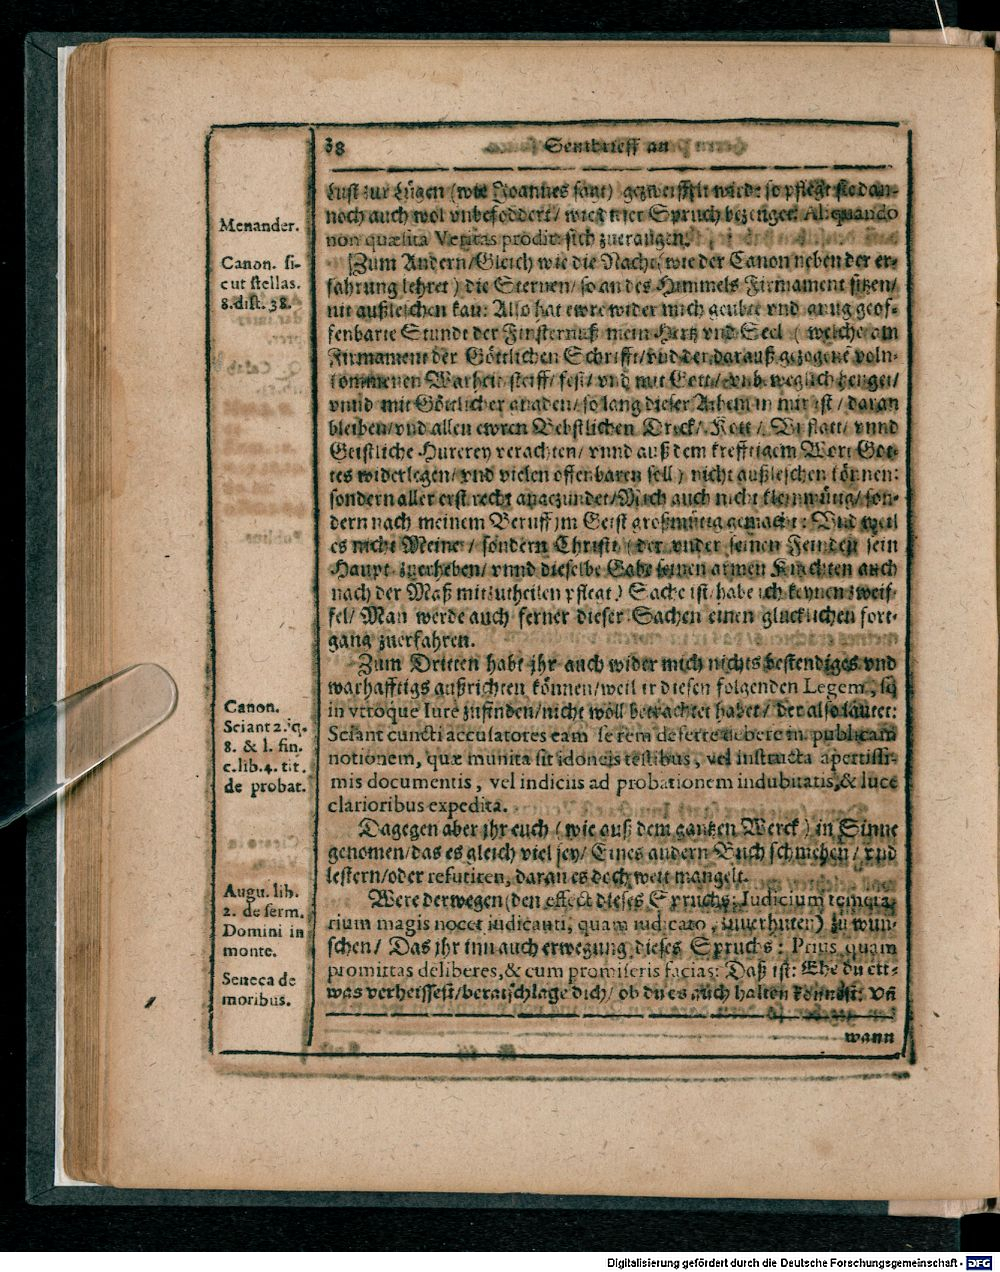 38 Sendbrieff an
Lust zur Lügen (wie Joannes sagt) gezweiffelt würde so pflegt sie dan-
noch auch wol vnbefoddert / wie dieser Spruch bezeuget: Aliquando
non quæsita Veritas prodit, sich zuerzeigen.
Menander.
Zum Andern / Gleich wie die Nacht (wie der Canon neben der er-
fahrung lehret) die Sternen / so an des Himmels Firmament sitzen /
nit außleschen kan: Also hat ewre wider mich geübte vnd gnug geof-
fenbarte Stundt der Finsternuß mein Hertz vnd Seel (welche am
Firmament der Göttlichen Schrifft / vnd der darauß gezogene voln-
kommenen Warheit steiff / fest / vnd mit Gott / vnbeweglich henget /
vnnd mit Göttlicher gnaden / so lang dieser Athem in mir ist / daran
bleiben / vnd allen ewren Bebstlichen Dreck / Kott / Vnflatt / vnnd
Geistliche Hurerey verachten / vnnd auß dem krefftigem Wort Got-
tes widerlegen / vnd vielen offenbaren soll) nicht außleschen können:
sondern aller erst recht angezündet / Mich auch nicht kleinmütig / son-
dern nach meinem Beruff im Geist großmütig gemacht: Vnd weil
es nicht Meine / sondern Christi (der vnder seinen Feinden sein
Haupt zuerheben / vnnd dieselbe Gabe seinen armen Knechten auch
nach der Maß mitzutheilen pflegt) Sache ist / habe ich keynen zweif-
fel / Man werde auch ferner dieser Sachen einen glücklichen fort-
gang zuerfahren.
Canon. si-
cut stellas.
8. dist. 38.
Zum Dritten habt jhr auch wider mich nichts bestendiges vnd
warhafftigs außrichten können / weil ir diesen folgenden Legem, so
in vtroque Iure zufinden / nicht woll betrachtet habet / der also lautet:
Sciant cuncti accusatores eam se rem deferre debere in publicam
notionem, quæ munita sit idoneis testibus, vel instructa apertissi-
mis documentis, vel indiciis ad probationem indubitatis, & luce
clarioribus expedita.
Canon.
Sciant 2. q.
8. & l. fin.
c. lib. 4. tit.
de probat.
Dagegen aber jhr euch (wie auß dem gantzen Werck) in Sinne
genomen / das es gleich viel sey / Eines andern Buch schmehen / vnd
lestern / oder refutiren, daran es doch weit mangelt.
Were derwegen (den effect dieses Spruchs: Iudicium temera-
rium magis nocet iudicanti, quam iudicato, zuuerhüten) zu wün-
schen / Das jhr inn auch erwegung dieses Spruchs: Prius, quam
promittas deliberes, & cum promiseris facias: Daß ist: Ehe du ett-
was verheissest / beratschlage dich / ob du es auch halten könnest: Vñ
Augu. lib.
2. de serm.
Domini in
monte.
Seneca de
moribus.
wann
Digitalisierung gefördert durch die Deutsche Forschungsgemeinschaft - DFG